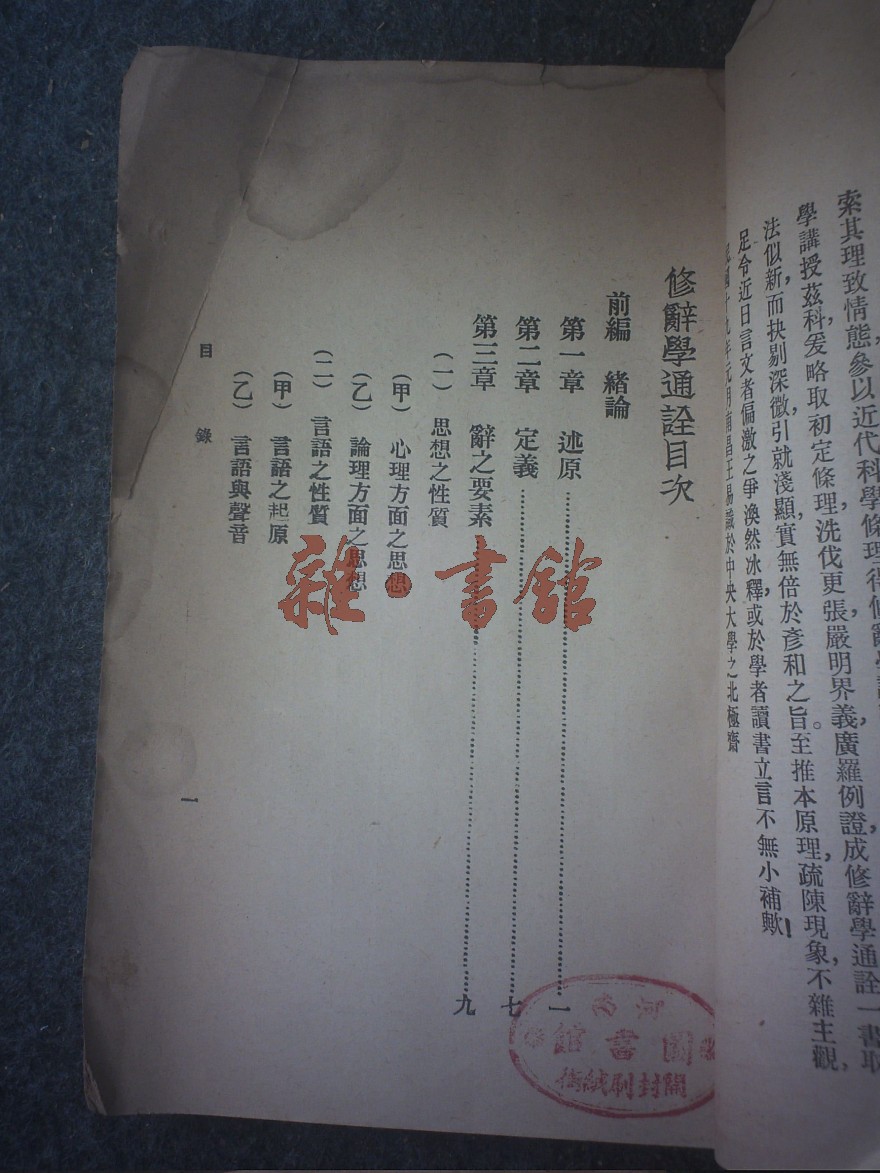 索其理致情態,參以近代科學條理,得修辭學
學講授茲科,爰略取初定條理,洗伐更張,嚴明界義,廣羅例證,成修辭學通詮一書,取
法似新,而抉剔深微,引就淺顯,實無倍於彥和之旨。至推本原理,疏陳現象,不雜主觀,
足令近日言文者偏激之爭,渙然冰釋,或於學者讀書立言,不無小補歟!
民國十九年元月南昌王易識於中央大學之北極齋
修辭學通詮目次
前編 緒論
第一章 述原……一
第二章 定義……七
第三章 辭之要素……九
(一) 思想之性質
(甲) 心理方面之思想
(乙) 論理方面之思想
(二) 言語之性質
(甲) 言語之起原
(乙) 言語與聲音
目錄
一
雜·書館
河南
圖書館
開封刷絨街